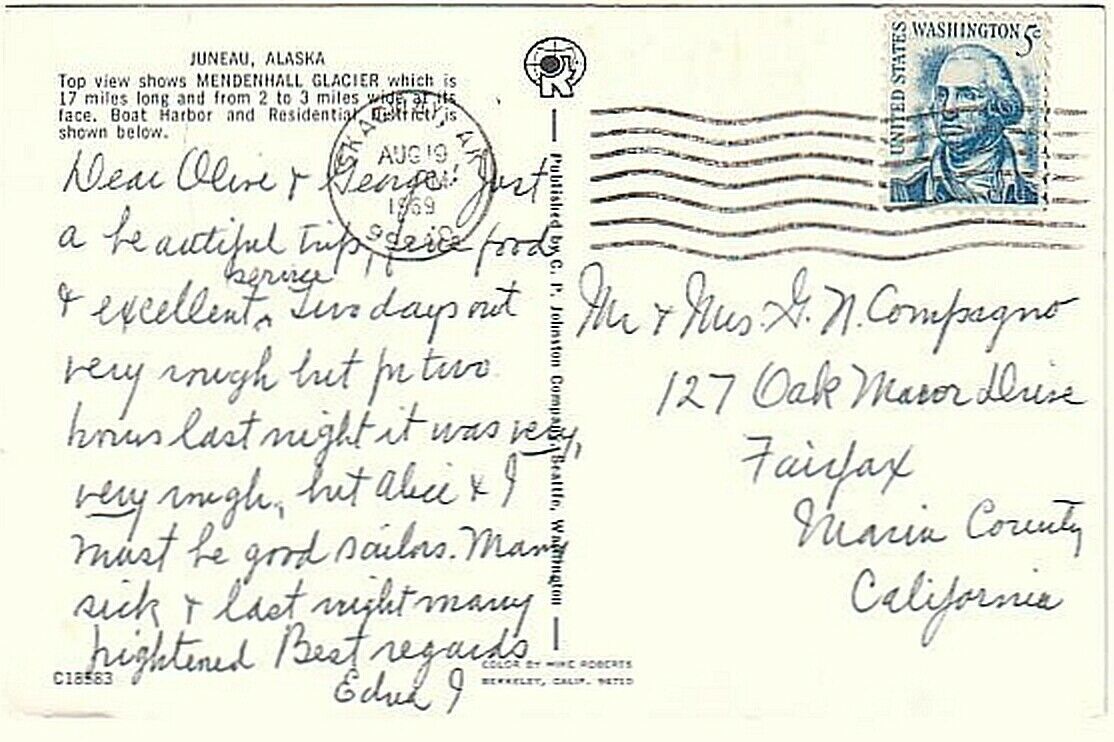 JUNEAU, ALASKA
Top view shows MENDENHALL GLACIER which is
17 miles long and from 2 to 3 miles wide at its
face. Boat Harbor and Residential District is
shown below.
Dear Olive & George: Just
a beautiful trip, fine food
& excellent service. Two days out
very rough but for two
hours last night it was very,
very rough, but Alice & I
must be good sailors. Many
sick & last night many
frightened Best regards
Edna J
C18583
Published by C. P. Johnston Company, Seattle, Washington
COLOR BY MIKE ROBERTS
BERKELEY, CALIF. 94710
SKAGWAY, AK
AUG 19
PM
1969
UNITED STATES
WASHINGTON 5c
Mr & Mrs. G. N. Compagno
127 Oak Manor Drive
Fairfax
Marin County
California